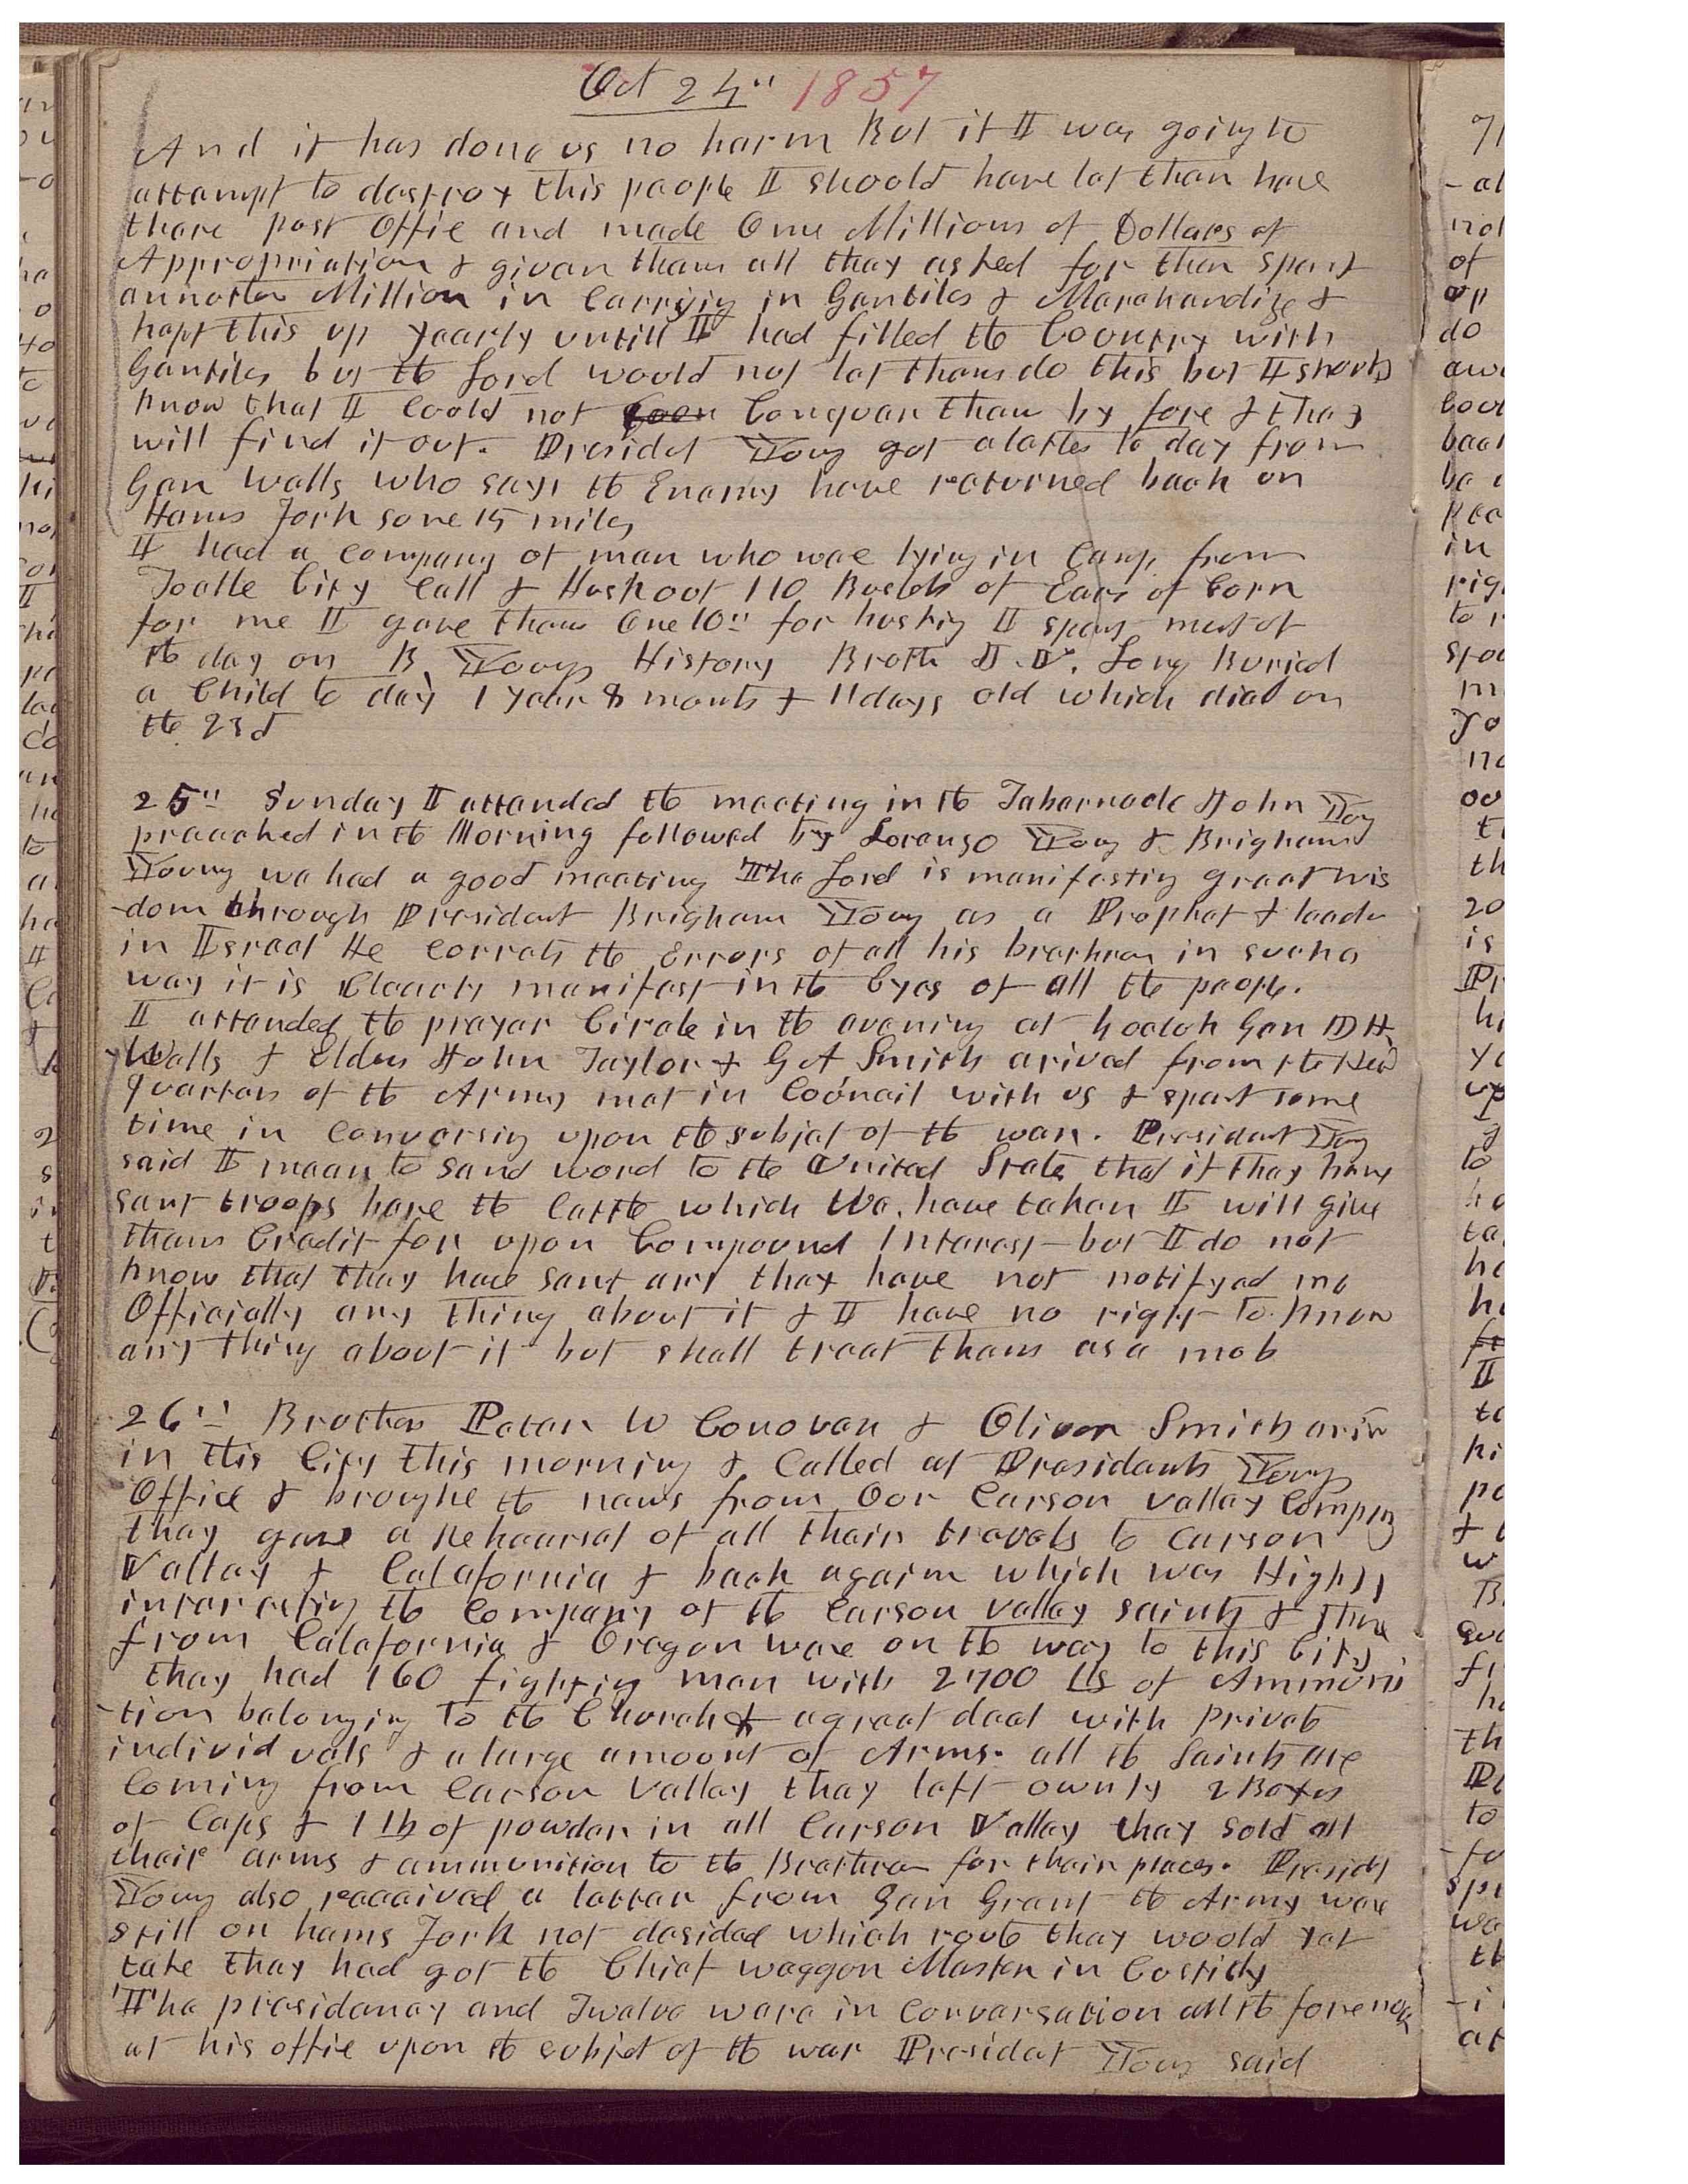 Oct 24" 1857
And it has done us no harm But if I was going to
attempt to destroy this people I should have let them have
there post Offie and made One Millions of Dollars of
Appropriation & given them all they asked for then spent
annother Million in Carrying in Gentiles & Merchandize &
kept this up yearly untill I had filled the Country with
Gentiles but the Lord would not let them do this but I should
know that I Could not Conquer them by forc & they
will find it out. Presidet Young got a letter to day from
Gen Wells who says the Enemy have returned back on
Hams Fork some 15 miles
I had a company of men who wae lying in Camp from
Tooele City Call & Husk out 110 Bushels of Ears of Corn
for me I gave them One 10th for husking I spent most of
the day on B Youngs History Broth J. V. Long Buried
a Child to day 1 year 8 months & 11 days old which died on
the 23d
25" Sunday I attended the meeting in the Tabernacle John Young
preached in the Morning followed by Lorenzo Young & Brigham
Young we had a good meeting The Lord is manifesting great wis
-dom through President Brigham Young as a Prophet & leader
in Israel He Corrects the Errors of all his brethren in such a
way it is Clearly manifest in the Eyes of all the people.
I attended the prayer Circle in the evening at 6 oclok Gen D H
Wells & Elders John Taylor & G A Smith arived from the Head
quarters of the Army met in Council with us & spent some
time in Conversing upon the subjet of the war. President Young
said I mean to send word to the United State that if they have
sent troops here the Cattle which We have taken I will give
them Credit for upon Compound Interest but I do not
know that they have sent any they have not notifyed me
Officially any thing about it & I have no right to know
any thing about it but shall treat them as a mob
26" Brother Peter W Conover & Oliver Smith ariv
in this City this morning & Called at Presidents Youngs
Office & broughe the news from Our Carson valley Compny
they gave a Rehearsal of all their travels to Carson
Valley & Calafornia & back again which was Highly
interesting the Company of the Carson valley saints & those
from Calafornia & Oregon wae on the way to this City
they had 160 fighting men with 2700 lbs of Ammuni
-tion belonging to the Church & a great deal with private
individuals & a large amount of Arms. all the Saints are
Coming from Carson Valley they left ownly 2 Boxes
of Caps & 1 lb of powder in all Carson Valley they sold all
their arms & ammunition to the Brethren for their places. Presidt
Young also receeived a letter from Gen Grant the Army wae
still on hams Fork not desided which route they would yet
take they had got the Chief waggon Master in Costidy
The presidency and Twelve ware in Conversation all the forenook
at his offie upon the subjet of the war Presidet Young said